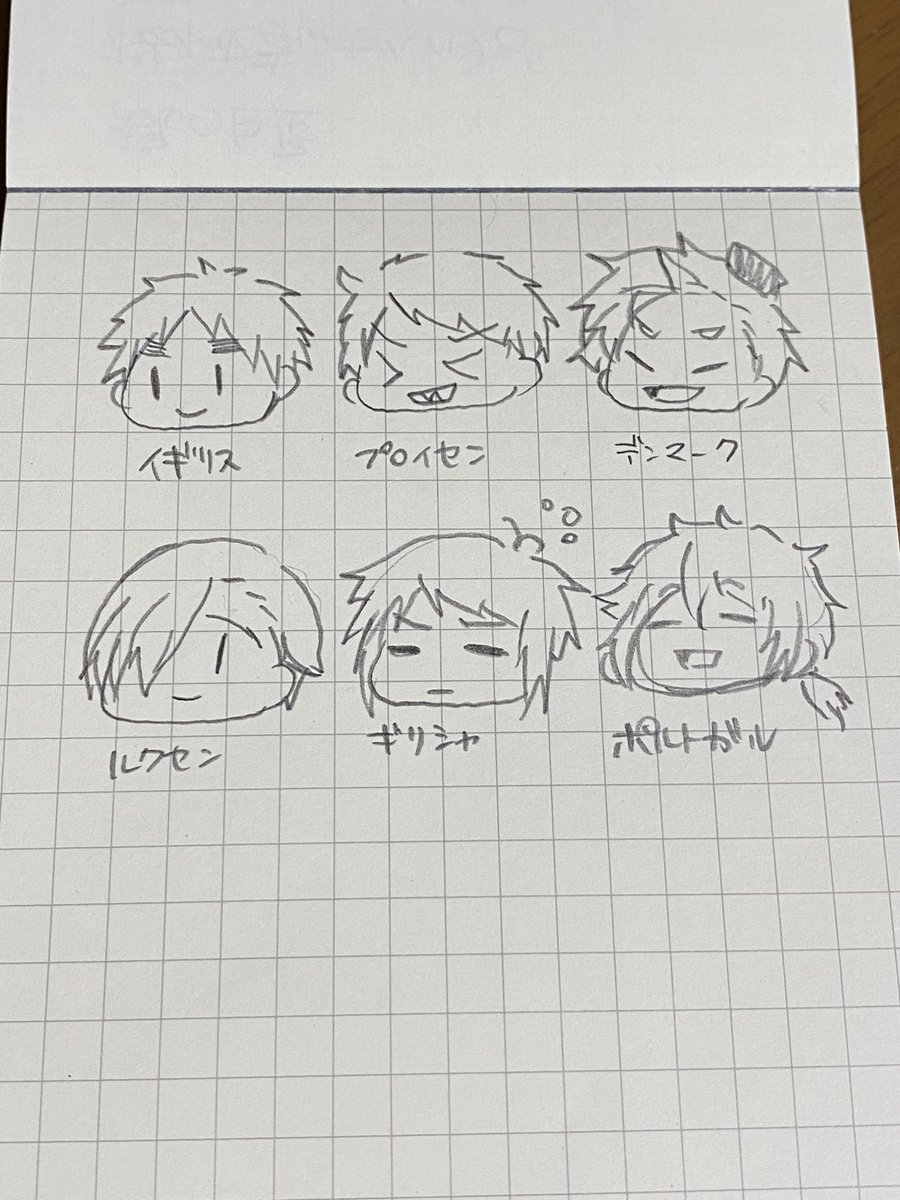 イギリス
プロイセン
デンマーク
ルクセン
ギリシャ
ポルトガル